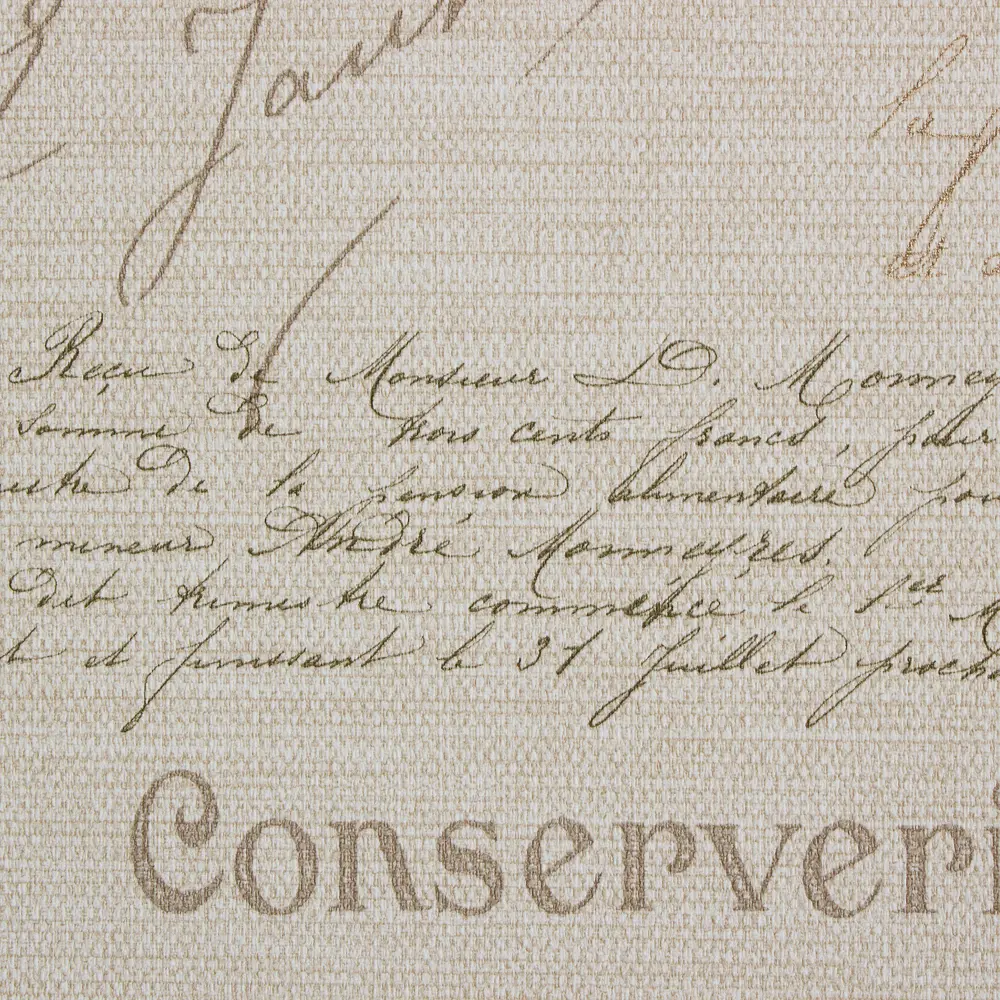 Reçu de Monsieur D. Monney
Somme de trois cents francs, pour
de la pension alimentaire pou
mineur André Monneyres.
dit trimestre commence le 1er M
et finissant le 31 Juillet proch
Conserveri